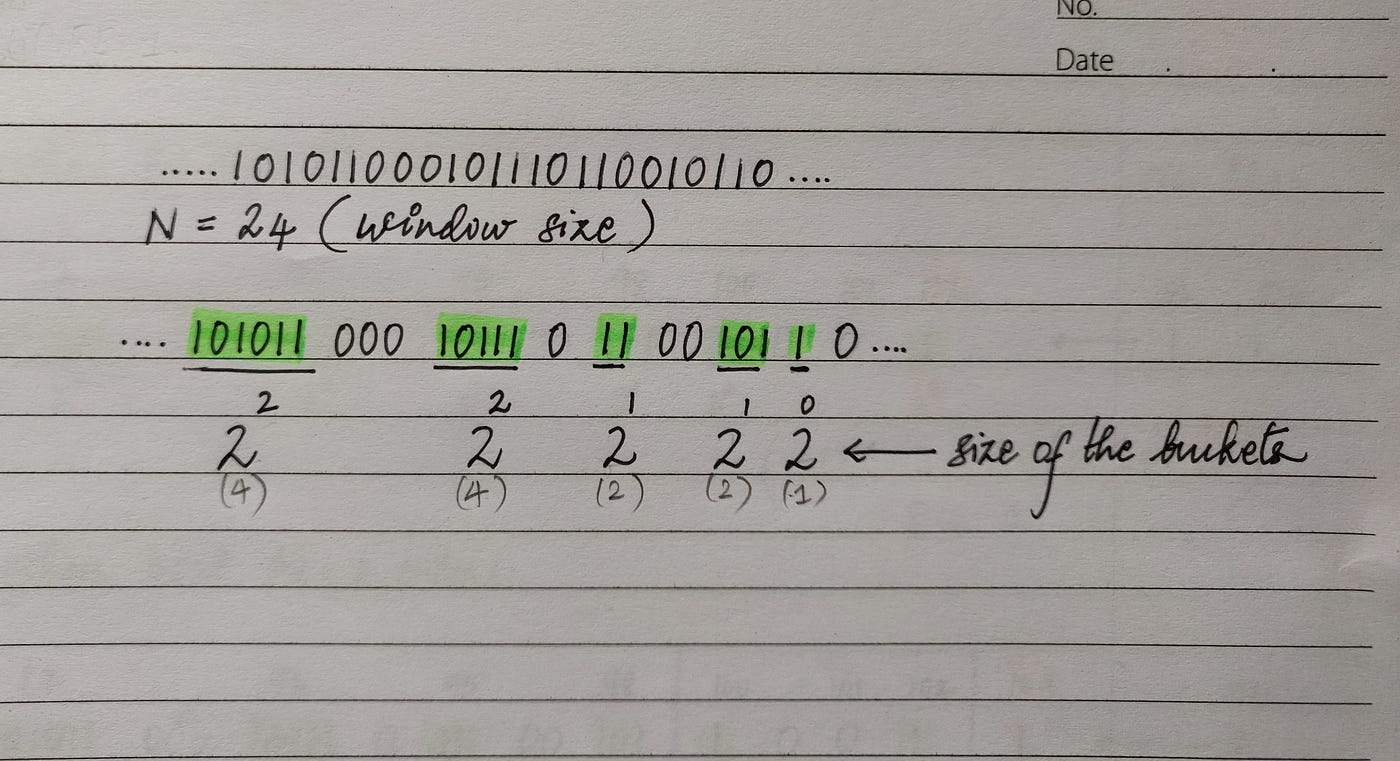 No.
Date . .
..... 101011000101110110010110 ....
N = 24 (window size)
.... 101011 000 10111 0 11 00 101 1 0 ....
2 2 1 1 0
2 2 2 2 2 ← size of the buckets
(4) (4) (2) (2) (1)